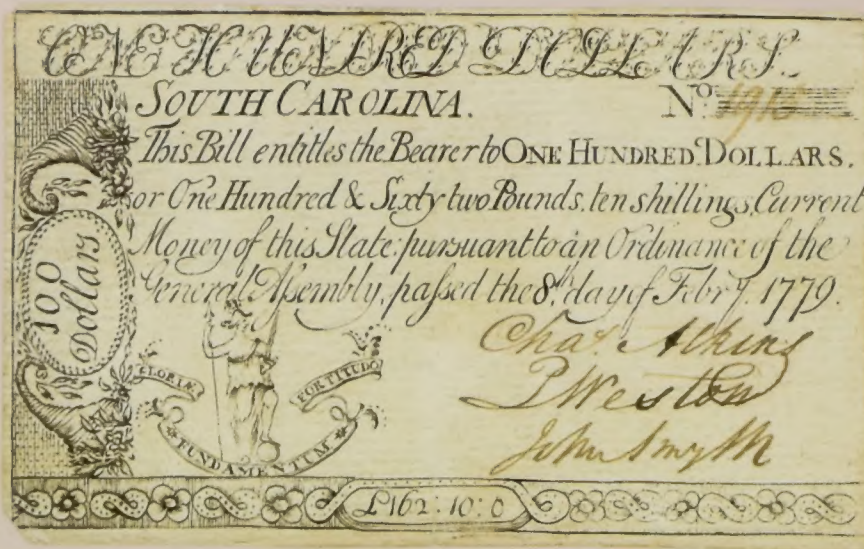 ONE HUNDRED DOLLARS.
SOUTH CAROLINA. No.
This Bill entitles the Bearer to ONE HUNDRED DOLLARS.
or One Hundred & Sixty two Pounds, ten shillings, Current
Money of this State; pursuant to an Ordinance of the
General Assembly, passed the 8th. day of Febry. 1779.
100
Dollars
Chas. Atkins
P Weston
John Smyth
GLORIÆ
FORTITUDO
FUNDAMENTUM
£162:10:0